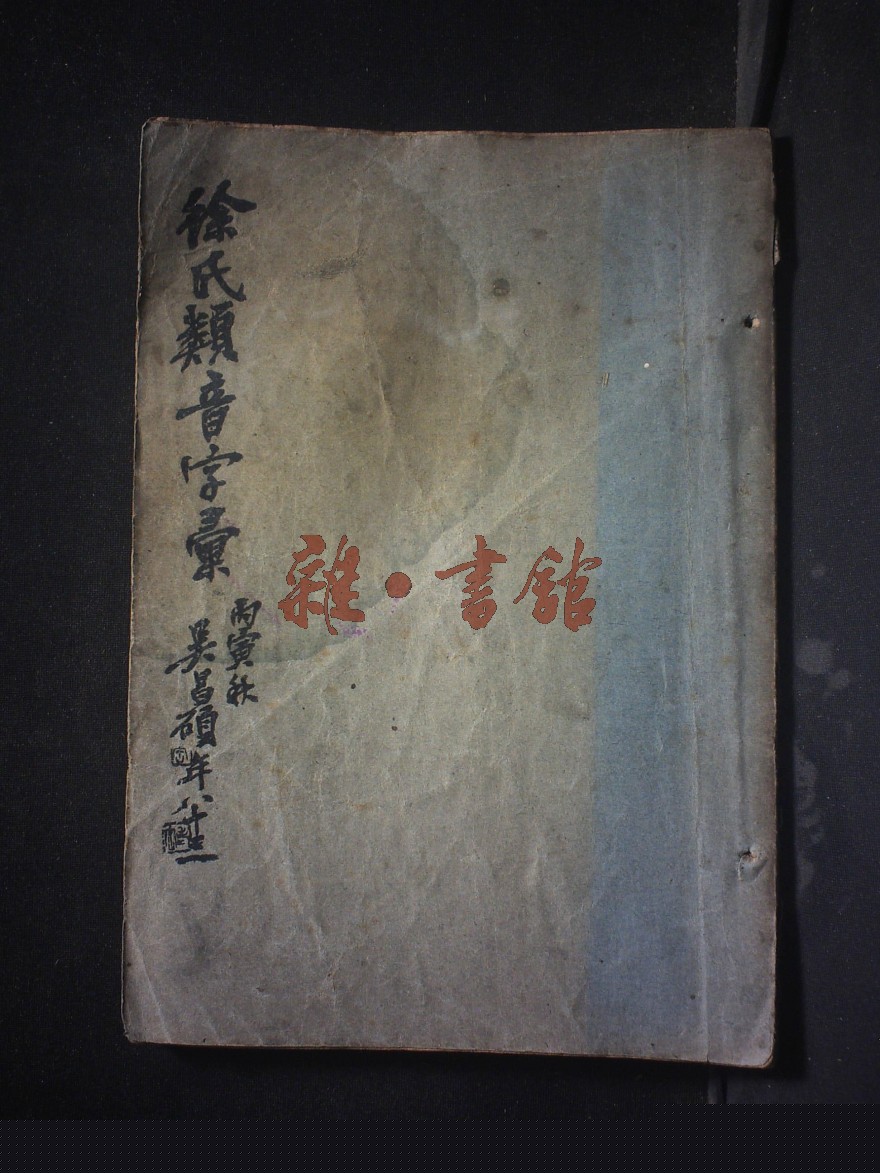 徐氏類音字彙
丙寅秋
吳昌碩年八十三
雜·書館